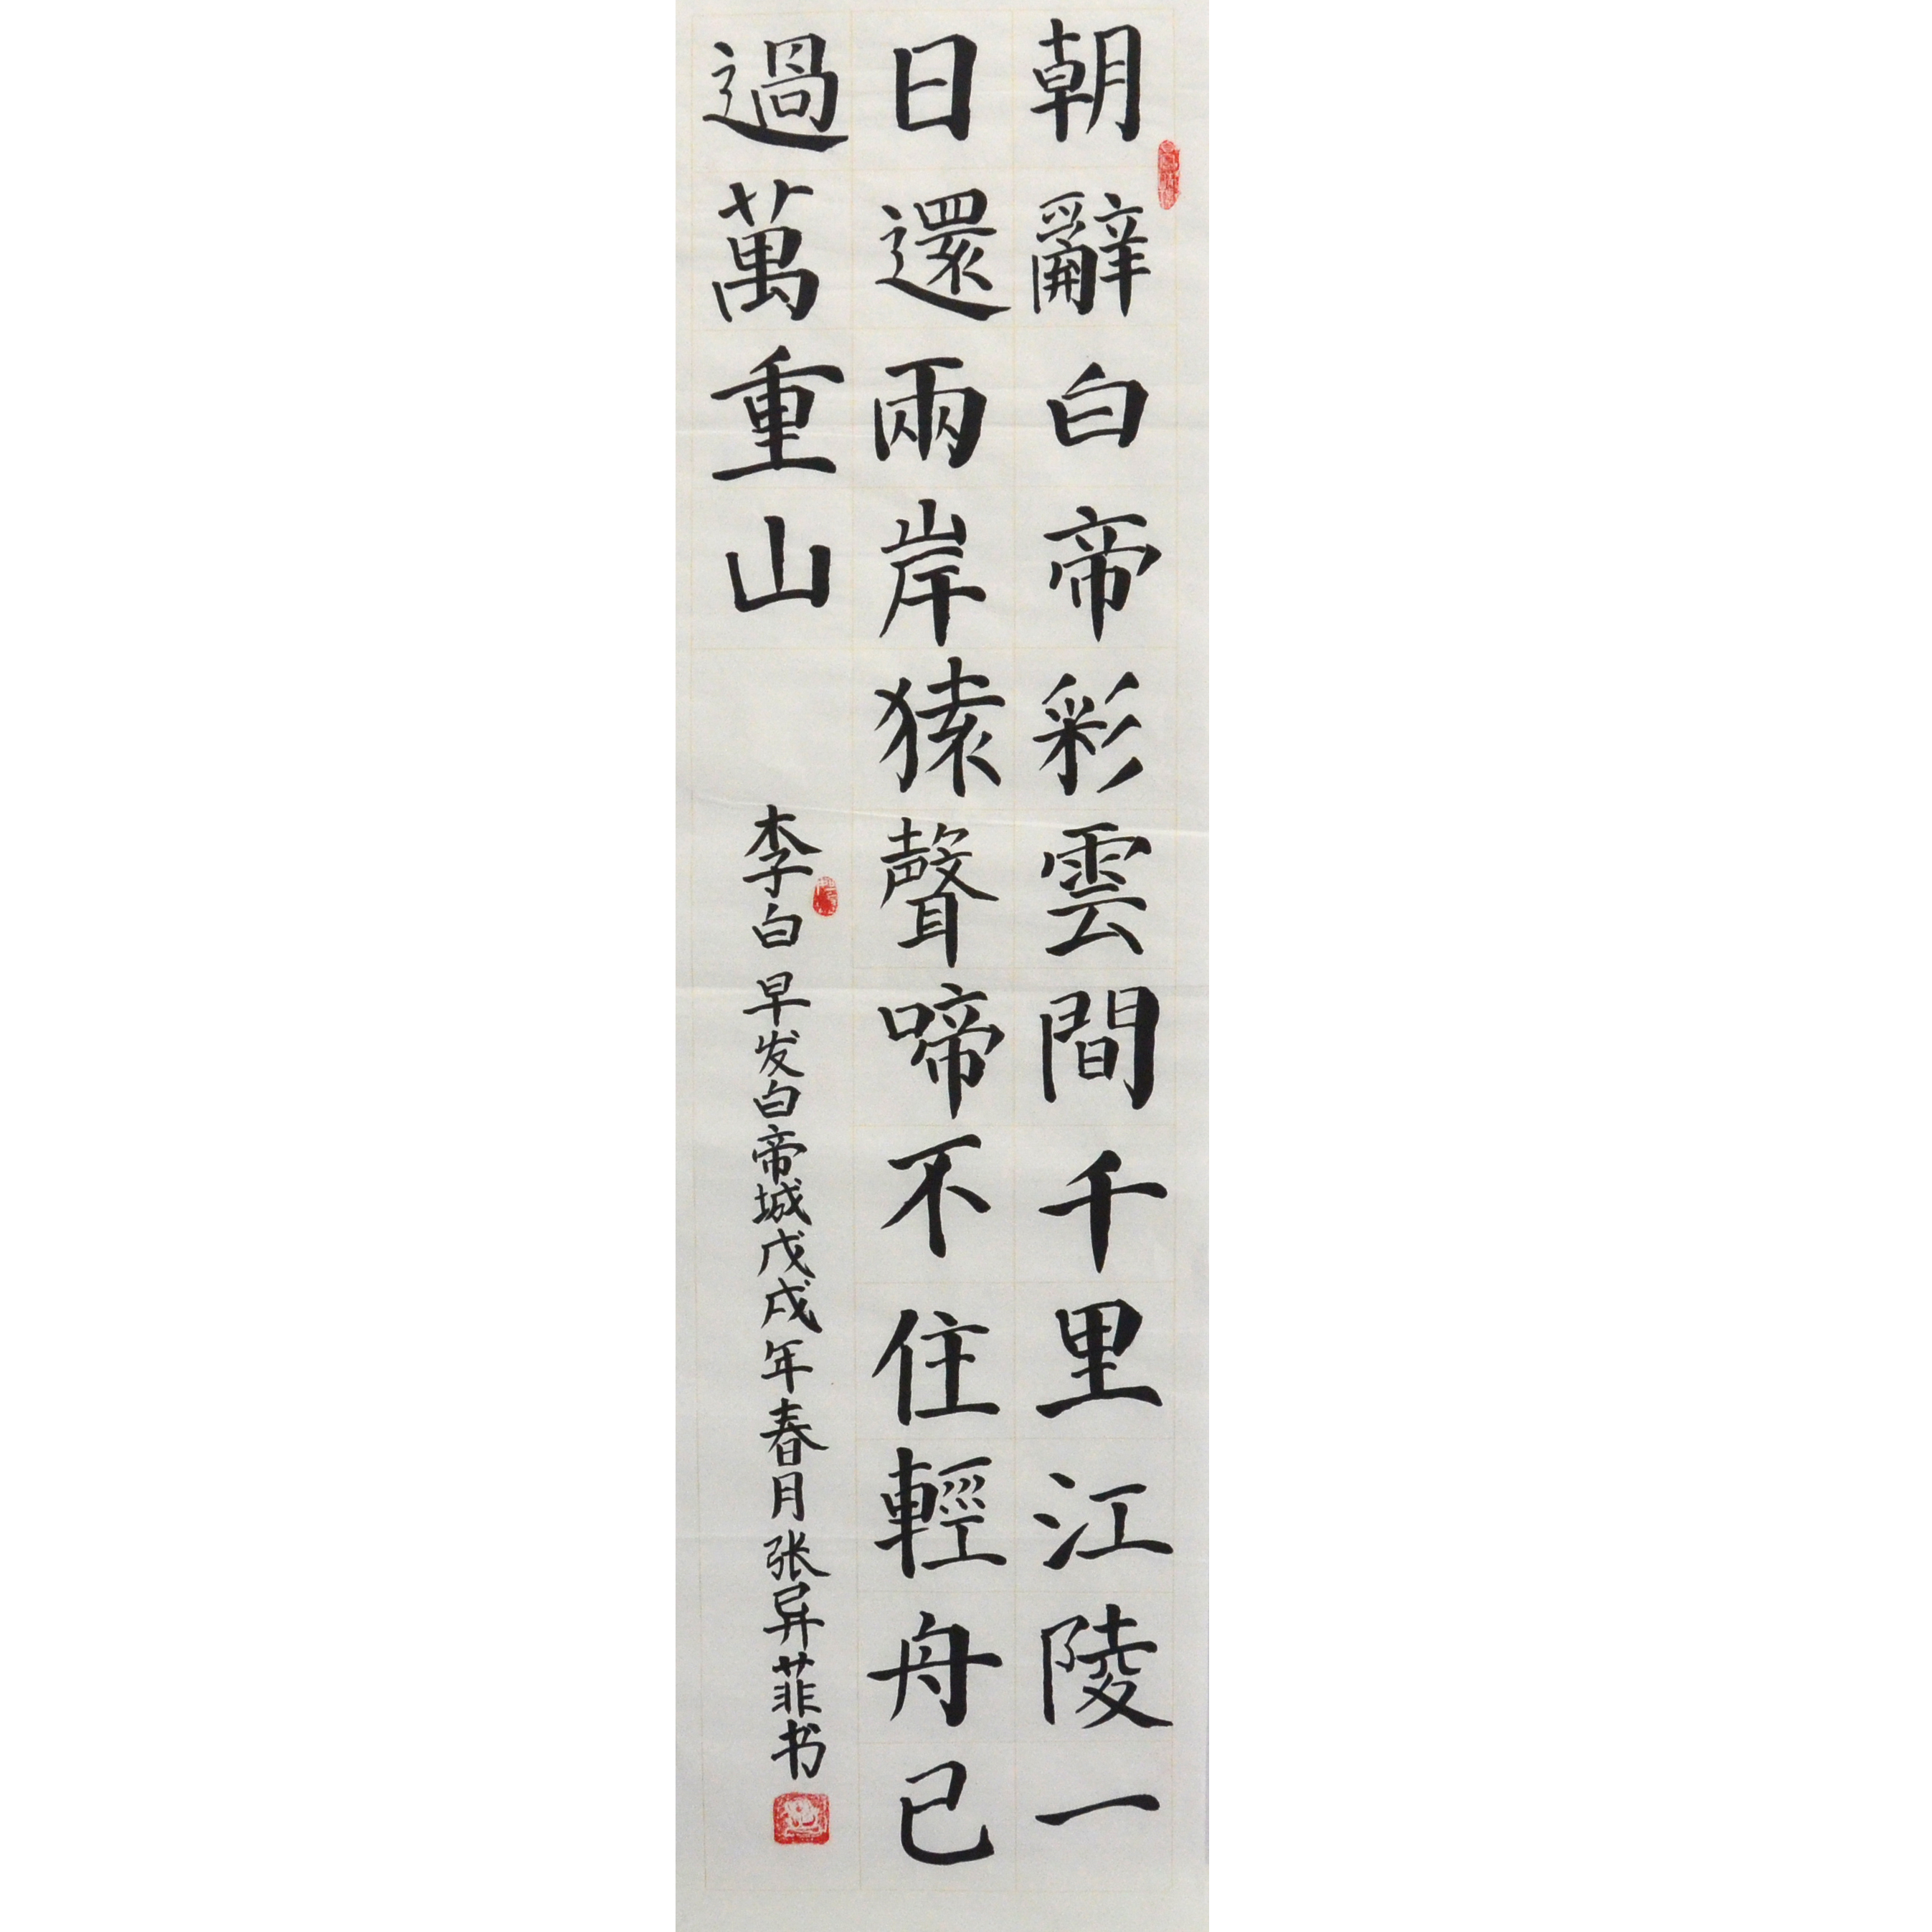 朝辭白帝彩雲間千里江陵一
日還兩岸猿聲啼不住輕舟已
過萬重山
李白早发白帝城戊戌年春月张异菲书